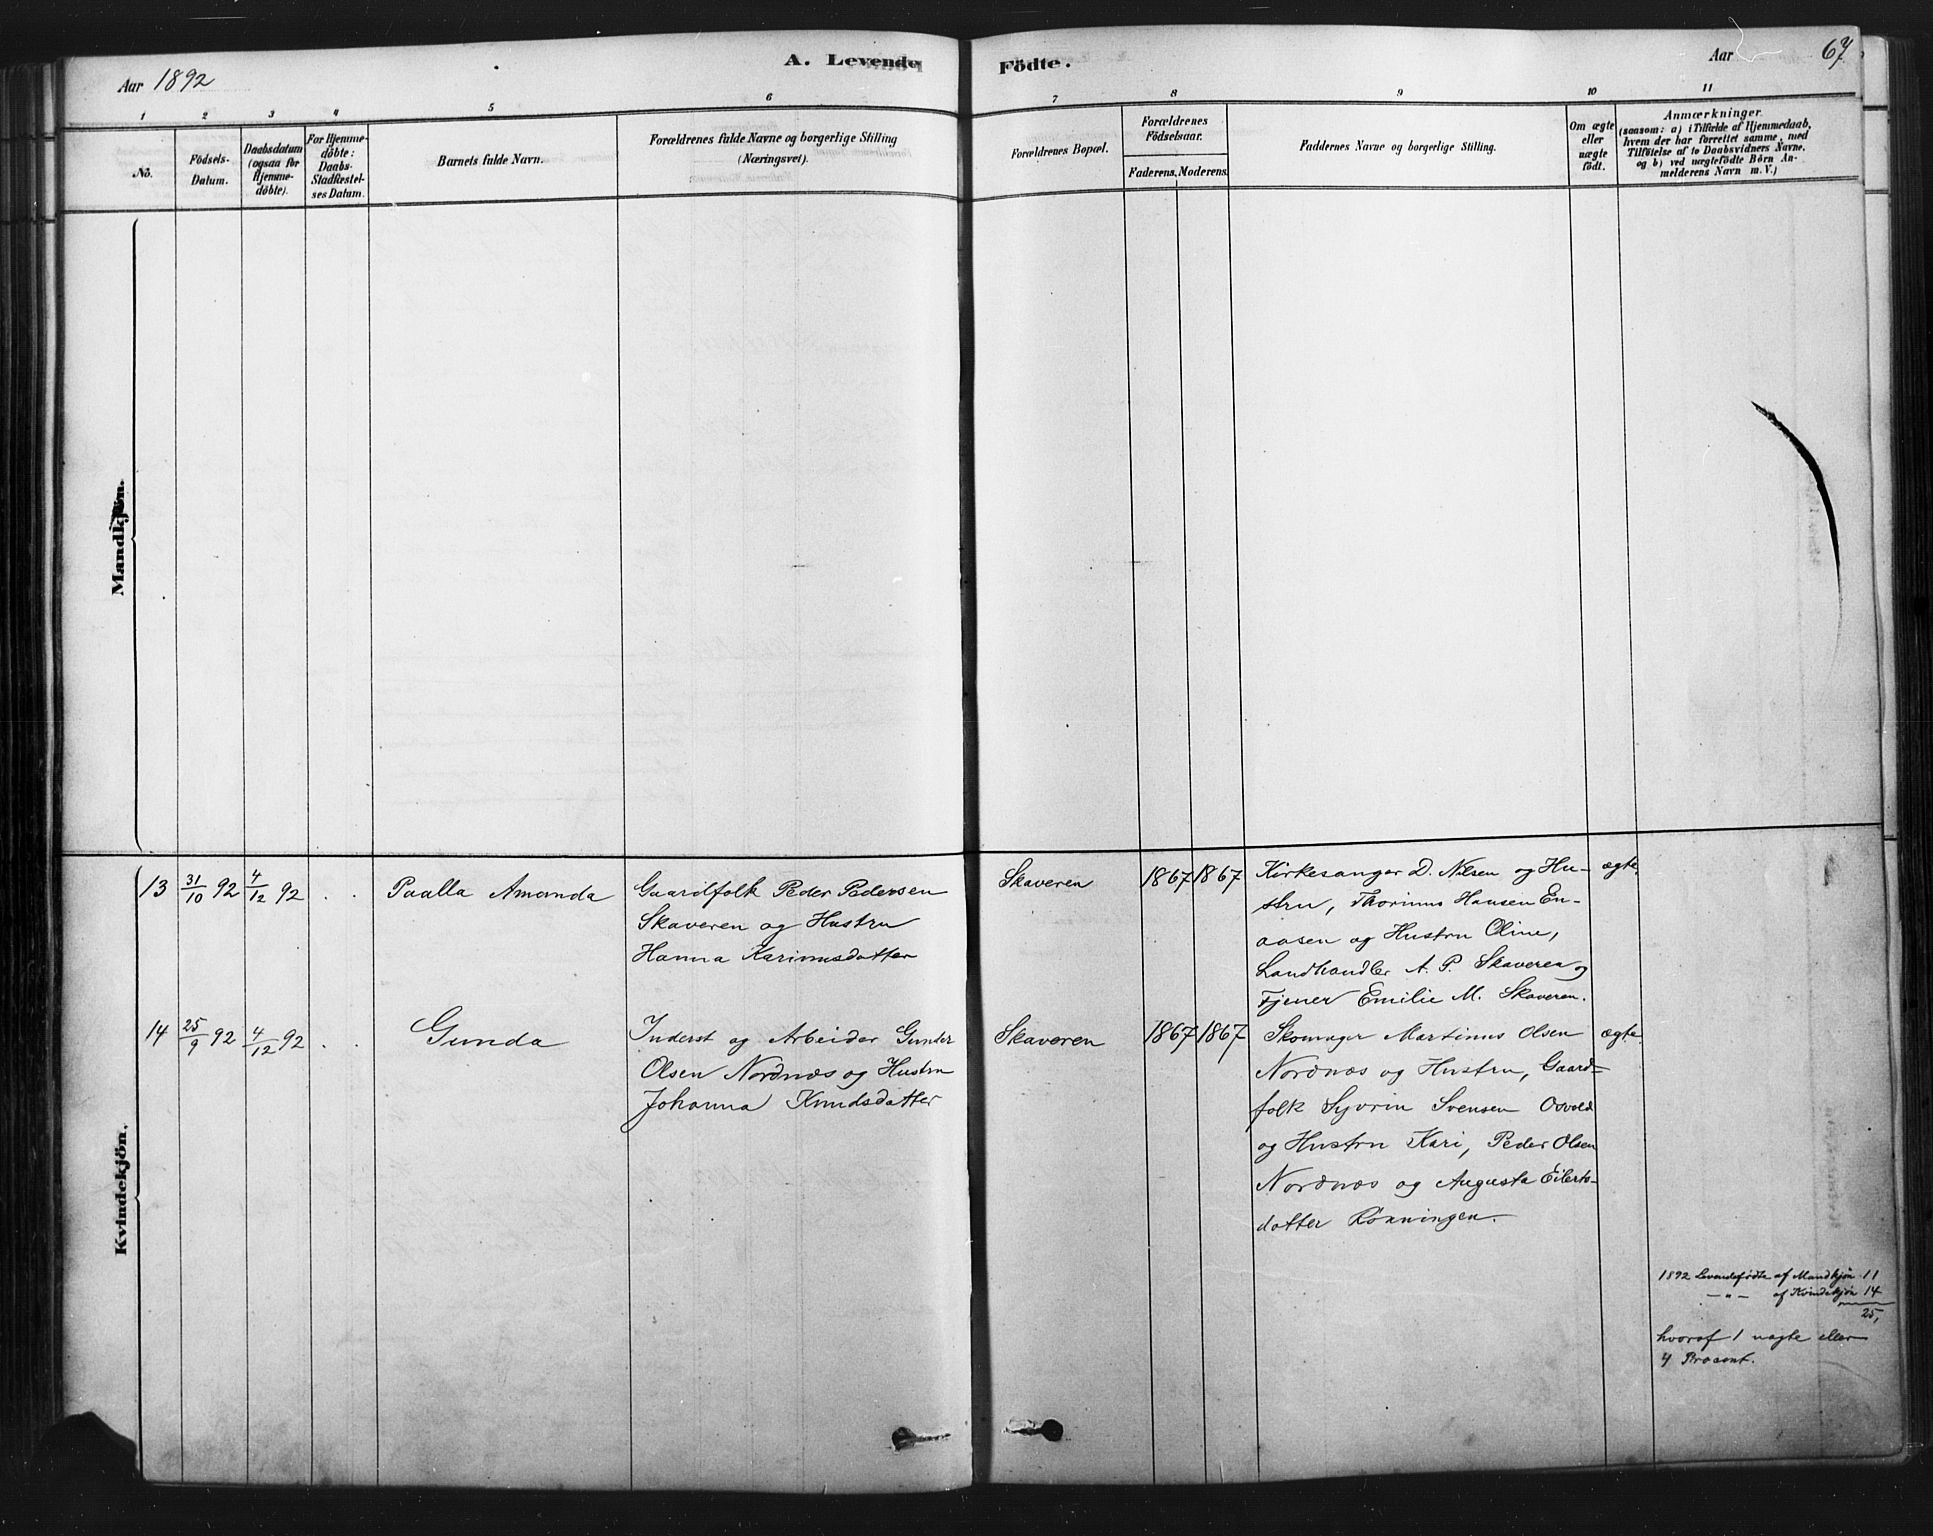 Aar 1892
A. Levende Födte.
Aar
67
1 2 3 4 5 6 7 8 9 10 11
No.
Födsels-
Datum.
Daabsdatum
(ogsaa for
Hjemme-
döbte).
For Hjemme-
döbte:
Daabs
Stadfæstel-
ses Datum.
Barnets fulde Navn.
Forældrenes fulde Navne og borgerlige Stilling
(Næringsvei).
Forældrenes Bopæl.
Forældrenes
Födselsaar.
Faderens. Moderens.
Faddernes Navne og borgerlige Stilling.
Om ægte
eller
uægte
födt.
Anmærkninger.
(saasom: a) i Tilfælde af Hjemmedaab,
hvem der har forrettet samme, med
Tilföielse af to Daabsvidners Navne,
og b) ved uægtefödte Börn An-
melderens Navn m. V.)
Mandkjön.
Kvindekjön.
13 31/10 92 4/12 92 Paalla Amanda
Gaardfolk Peder Pedersen
Skaveren og Hustru
Hanna Karinusdatter
Skaveren 1867 1867
Kirkesanger D. Nilsen og Hu-
stru, Thorinus Hansen En-
aasen og Hustru Oline,
Landhandler A. P. Skaveren og
Tjener Emilie M. Skaveren.
ægte
14 25/9 92 4/12 92 Gunda
Inderst og Arbeider Gunder
Olsen Nordnæs og Hustru
Johanna Knudsdatter
Skaveren 1867 1867
Skomager Martinus Olsen
Nordnæs og Hustru, Gaard-
folk Syvrin Svensen Osvold
og Hustru Kari, Peder Olsen
Nordnæs og Augusta Eilerts-
datter Rönningen.
ægte
1892 Levendefödte af Mandkjön 11
— " — af Kvindekjön 14
25,
hvoraf 1 uægte eller
4 Procent.